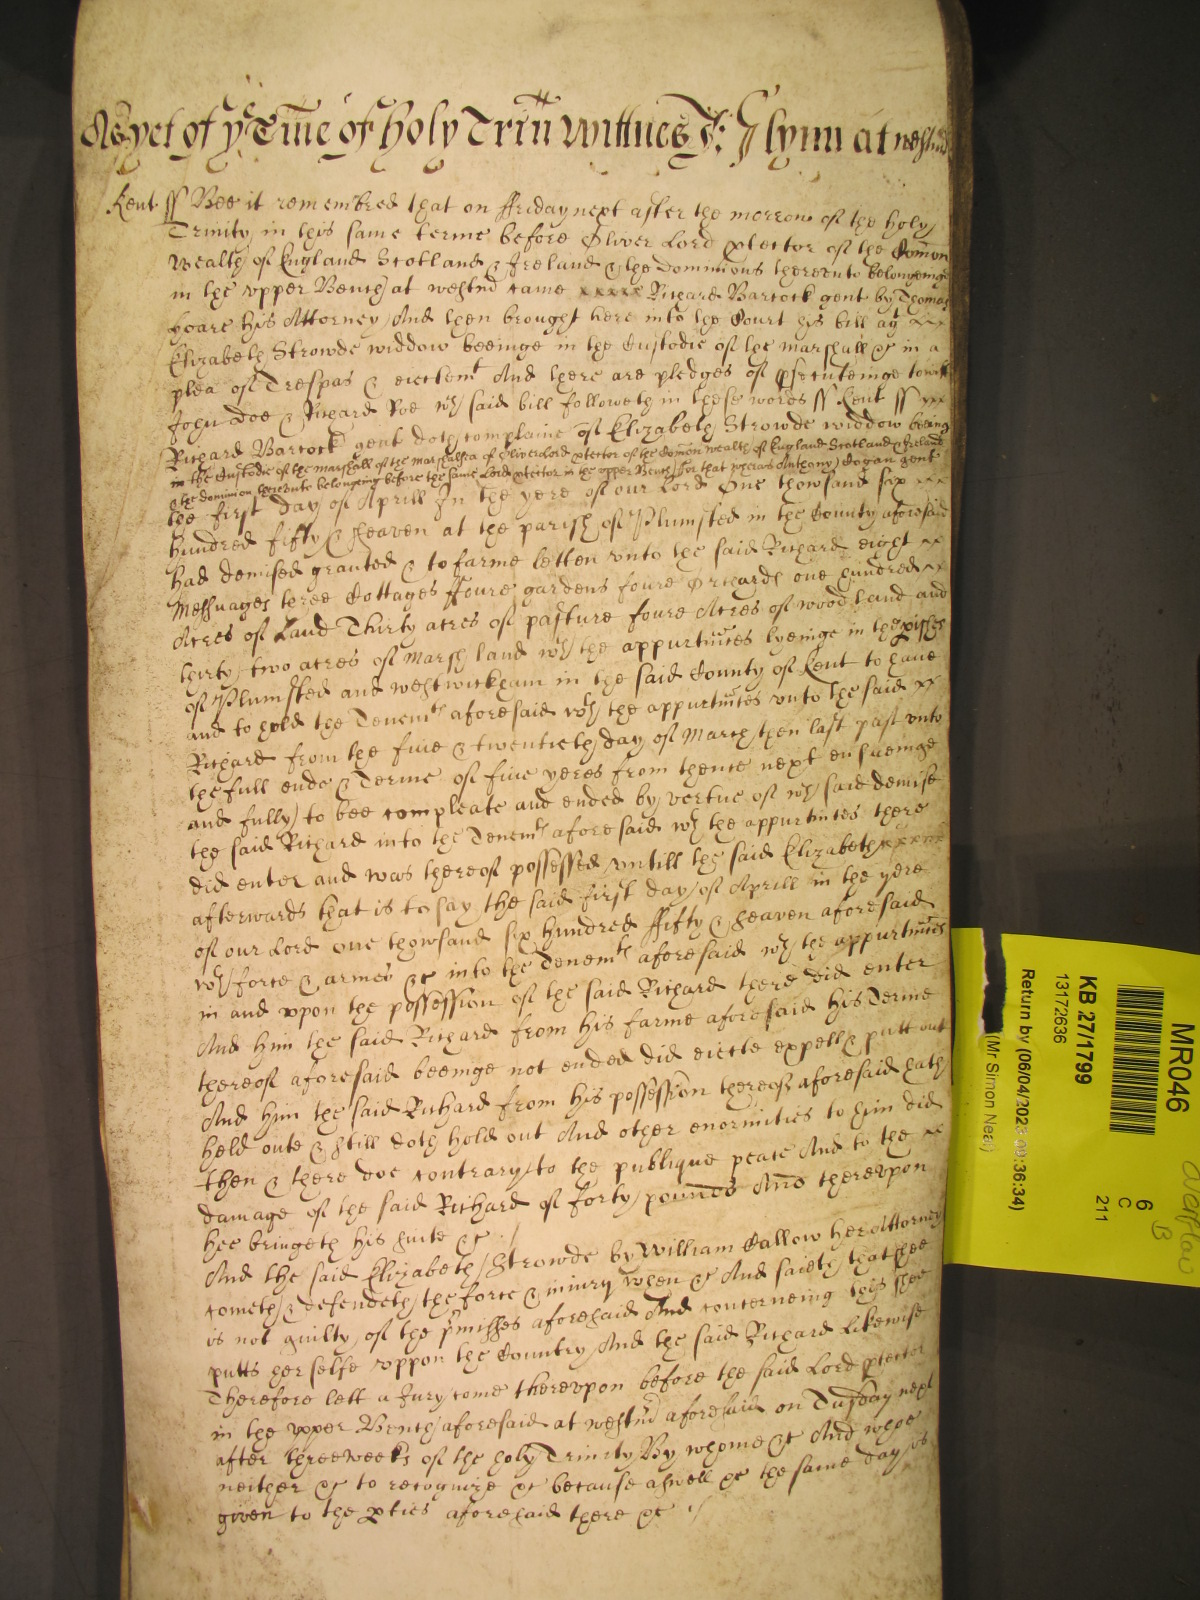 As yet of yᵉ Tme of holy Trin Wittnes J: Glynn at westmr
Kent ss Bee it remembred that on ffriday next after the morrow of the holy
Trinity in this same terme before Oliver Lord ptector of the Comon
wealth of England Scotland & Ireland & the dominions thereunto belongeinge
in the vpper Bench at westmr came xxxxx Richard Barcock gent by Thomas
hoare his Attorney And then brought here into the Court his bill agt xxx
Elizabeth Strowde widdow beeinge in the Custodie of the marshall &c in a
plea of Trespas & eiectemt And there are pledges of psecuteinge towitt
John Doe & Richard Roe wch said bill followeth in these words ss Kent ss xx
Richard Barcock gent doth complaine of Elizabeth Strowde widdow being
in the Custodie of the marshall of the marshalsea of Oliver Lord ptector of the Comon wealth of England Scotland & Ireland
& the dominion thereunto belongeing before the same Lord ptector in the vpper Bench ffor that wheras Anthony Cogan gent
the first day of Aprill In the yere of our Lord One thowsand six xxx
hundred fifty & seaven at the parish of Plumsted in the County aforesaid
had demised granted & to farme letten vnto the said Richard eight xx
Messuages three Cottages ffoure gardens foure Orchards one hundred xx
Acres of Land Thirty acres of pasture foure Acres of wood land and
thirty two acres of marsh land wth the appurtnces lyeinge in the pishes
of Plumsted and westwickham in the said County of Kent to have
and to hold the Tenemts aforesaid wth the appurtnces vnto the said xx
Richard from the five & twentieth day of March then last past vnto
the full ende & Terme of five yeres from thence next ensueinge
and fully to bee compleate and ended by vertue of wch said demise
the said Richard into the Tenemts aforesaid wth the appurtnces there
did enter and was thereof possessed vntill the said Elizabeth xxxxx
afterwards that is to say the said first day of Aprill in the yere
of our Lord one thowsand six hundred ffifty & seaven aforesaid
wth force & armes &c into the Tenemts aforesaid wth the appurtnces
in and vpon the possession of the said Richard there did enter
And him the said Richard from his farme aforesaid his Terme
thereof aforesaid beeinge not ended did eiecte expell & putt out
And him the said Richard from his possession thereof aforesaid hath
held oute & still doth hold out And other enormities to him did
then & there doe contrary to the publique peace And to the xx
damage of the said Richard of forty pounds And therevpon
hee bringeth his suite &c
And the said Elizabeth Strowde by William Callow her Attorney
cometh & defendeth the force & iniury when &c And saieth that shee
is not guilty of the pmisses aforesaid And concerneing this shee
putts her selfe vppon the Country And the said Richard likewise
Therefore lett a Jury come therevpon before the said Lord ptector
in the vpper Bench aforesaid at westmr aforesaid on Tuesday next
after three weeks of the holy Trinity By whome &c And whoe
neither &c to recognize &c because aswell &c the same day is
given to the pties aforesaid there &c
MR046
6
C
211
KB 27/1799
13172636
Return by (06/04/2023 :36:34)
(Mr Simon Neal)